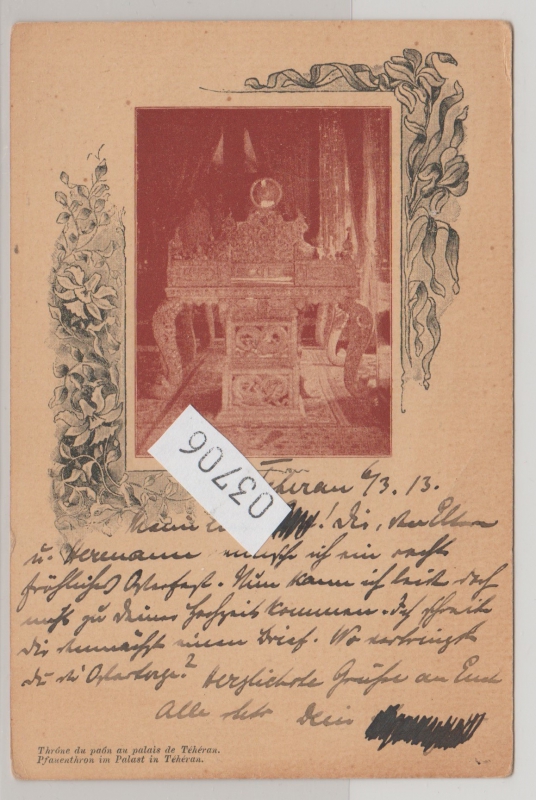 03706
Teheran 6/3. 13.
Mein ! Dir, den Eltern
u. Hermann wünsche ich ein recht
fröhliches Osterfest. Nun kann ich leider doch
nicht zu Deiner Hochzeit kommen. Ich schreibe
Dir demnächst einen Brief. Wo verbringst
Du die Ostertage? Herzlichste Grüße an Euch
Alle Dein
Thrône du paôn au palais de Téhéran.
Pfauenthron im Palast in Téhéran.